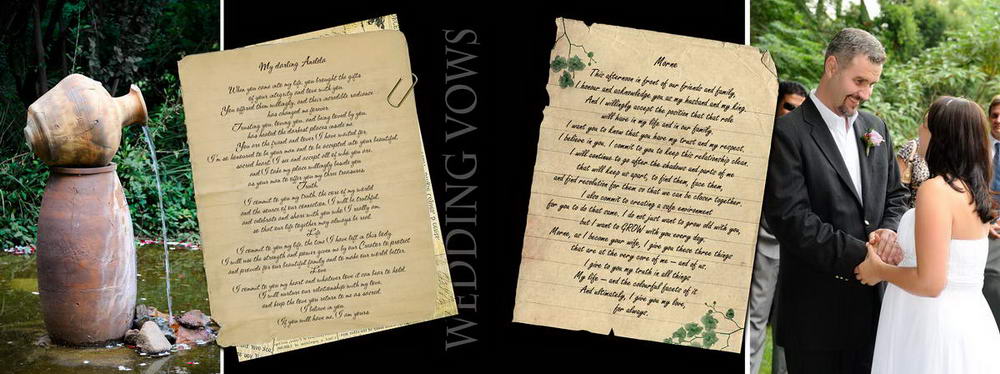 My darling Andéla
When you came into my life, you brought the gifts
of your integrity and love with you.
You offered them willingly, and their incredible radiance
has changed me forever.
Trusting you, loving you, and being loved by you
has healed the darkest places inside me.
You are the friend and lover I have waited for.
I'm so honoured to be your man and to be accepted into your beautiful,
sacred heart. I see and accept all of who you are,
and I take my place willingly beside you
as your man to offer you my three treasures.
Truth
I commit to you my truth, the core of my world
and the source of our connection. I will be truthful,
and celebrate and share with you who I really am,
so that our life together may always be real.
Life
I commit to you my life, the time I have left in this body.
I will use the strength and power given me by our Creator to protect
and provide for our beautiful family and to make our world better.
Love
I commit to you my heart and whatever love it can bear to hold.
I will nurture our relationship with my love,
and keep the love you return to me as sacred.
I believe in you.
If you will have me, I am yours.
WEDDING VOWS
Morne
This afternoon in front of our friends and family,
I honour and acknowledge you as my husband and my king.
And I willingly accept the position that that role
will have in my life and in our family.
I want you to know that you have my trust and my respect.
I believe in you. I commit to you to keep this relationship clean.
I will continue to go after the shadows and parts of me
that will keep us apart, to find them, face them,
and find resolution for them so that we can be closer together.
I also commit to creating a safe environment
for you to do that same. I do not just want to grow old with you,
but I want to GROW with you every day.
Morne, as I become your wife, I give you these three things
that are at the very core of me — and of us.
I give to you my truth in all things.
My life — and the colourful facets of it
And ultimately, I give you my love,
for always.